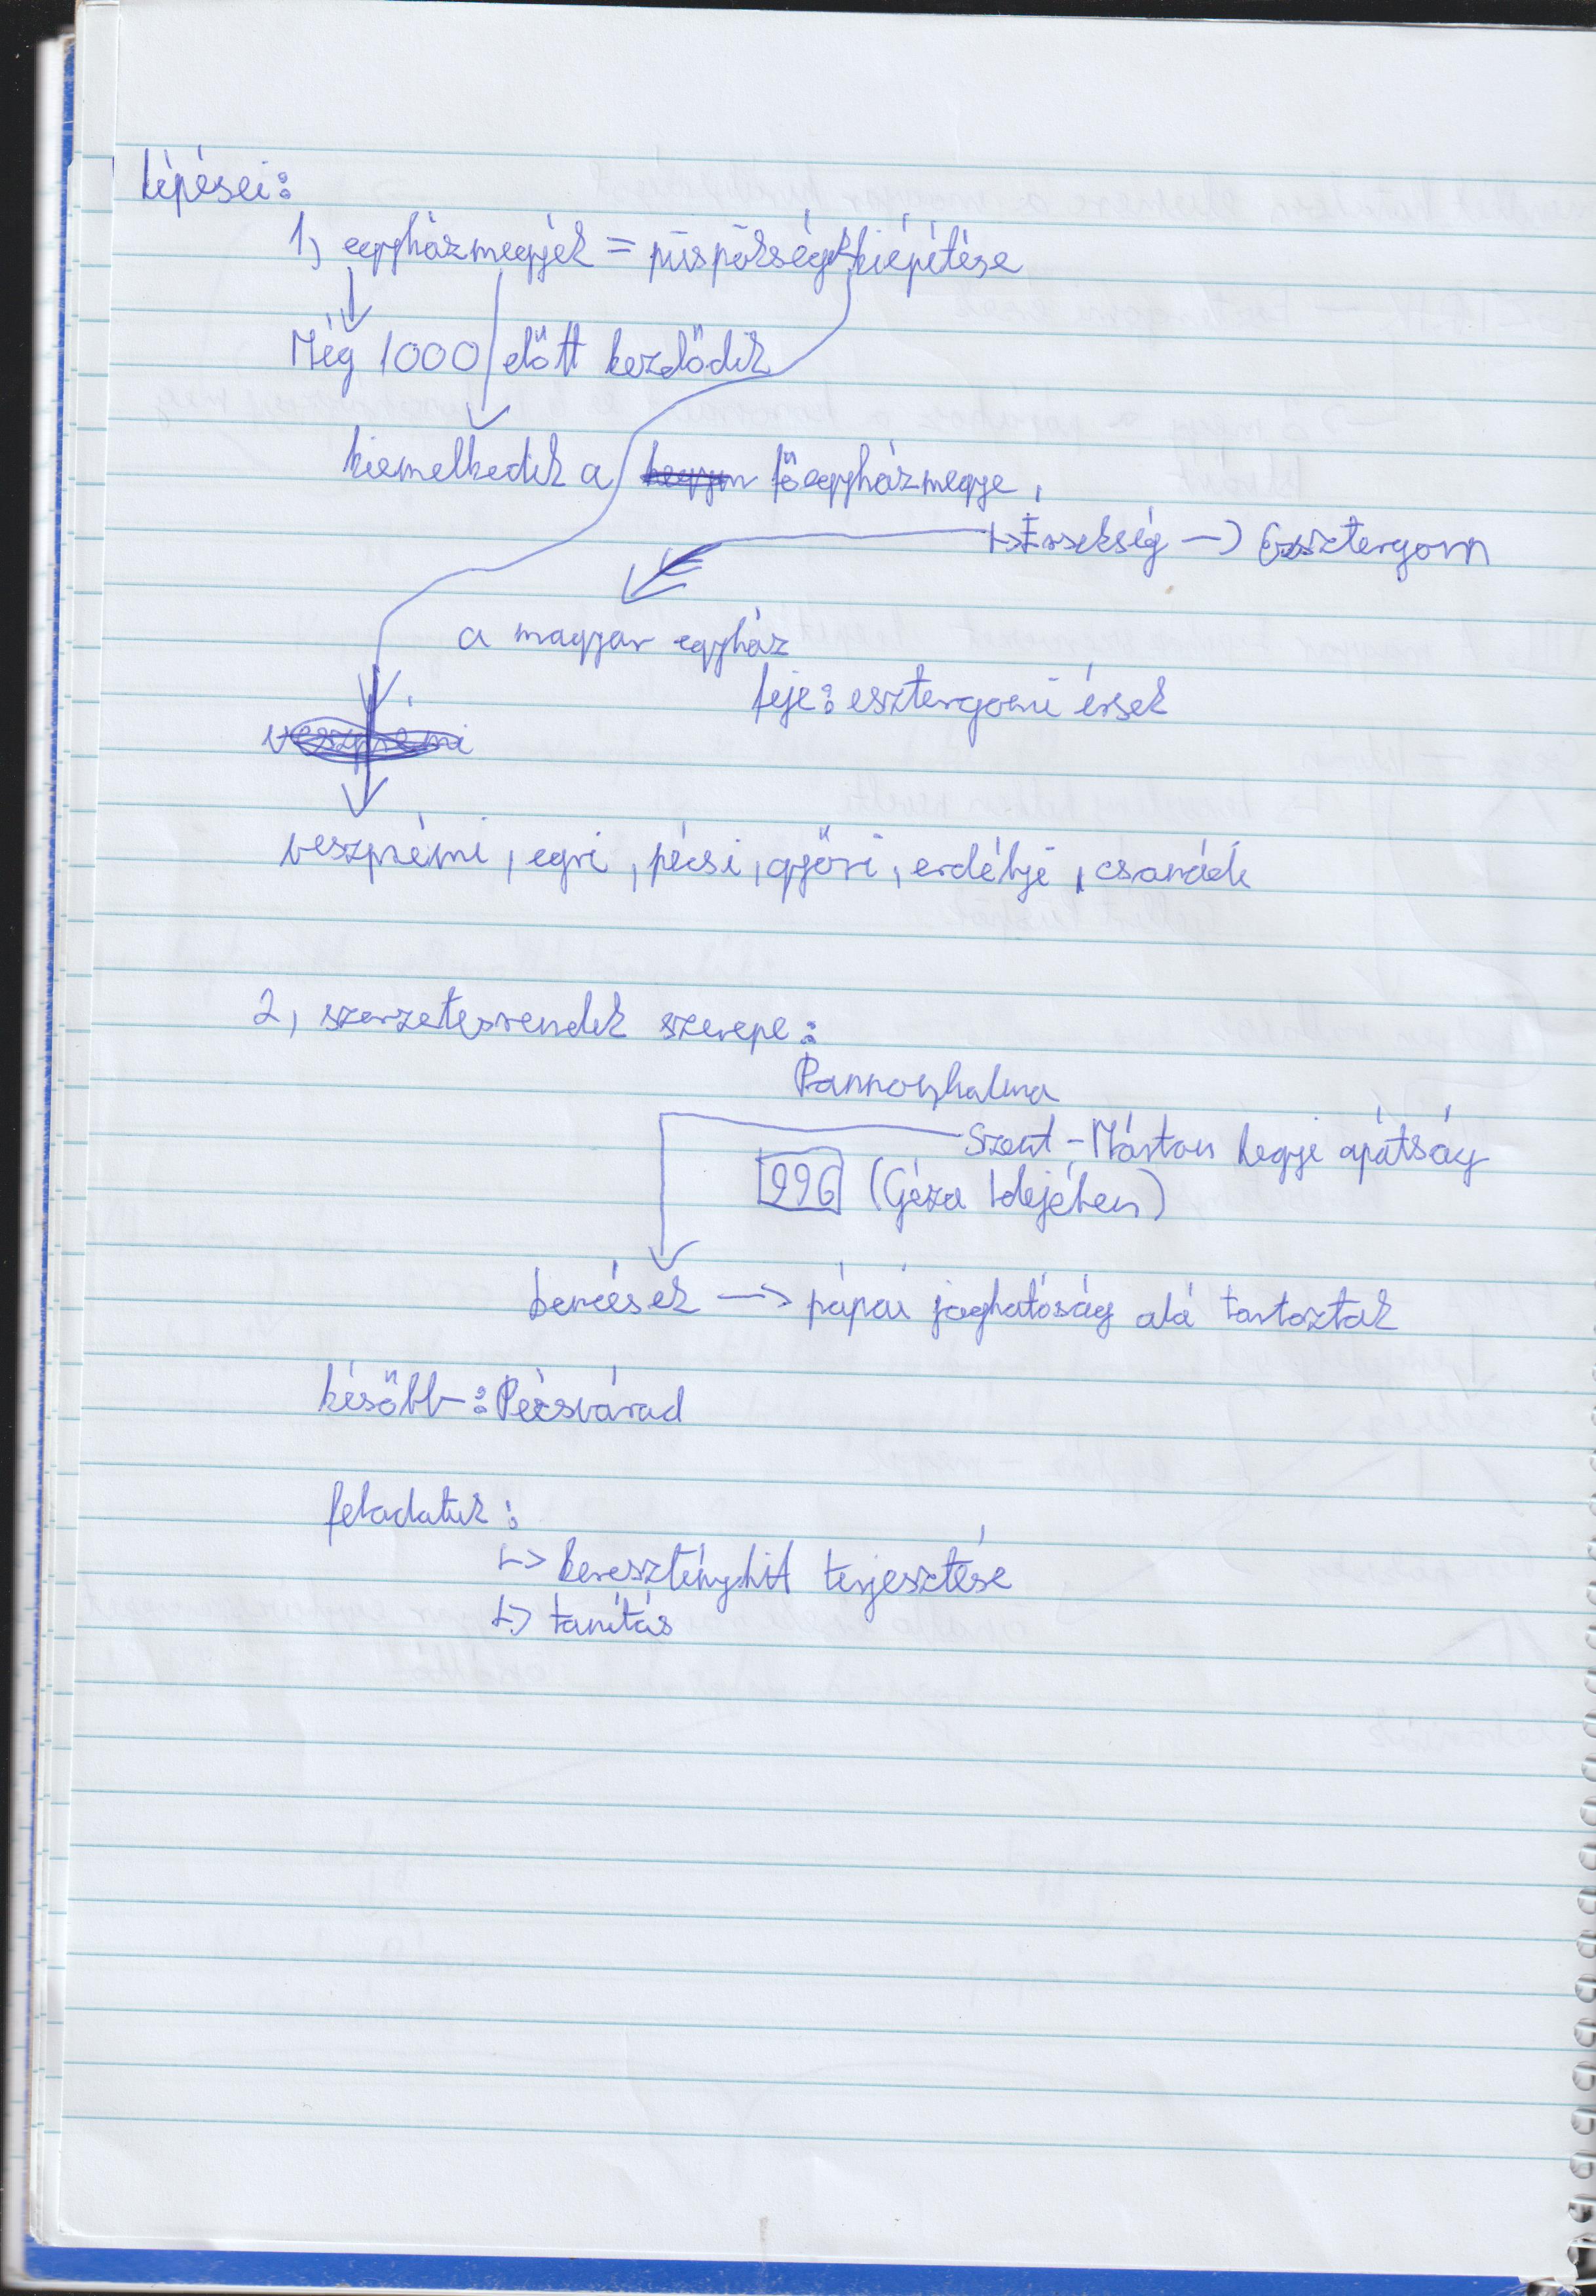 lépései:
1, egyházmegyék = püspökségek kiépítése
Még 1000 előtt kezdődik
kiemelkedik a főegyházmegye,
↳ Érsekség → Esztergom
a magyar egyház
feje: esztergomi érsek
veszprémi
veszprémi, egri, pécsi, győri, erdélyi, csanádi
2, szerzetesrendek szerepe:
Pannonhalma
Szent-Márton hegyi apátság
996 (Géza Idejében)
bencések → pápai joghatóság alá tartoztak
később: Pécsvárad
feladatuk:
↳ keresztényhit terjesztése
↳ tanítás